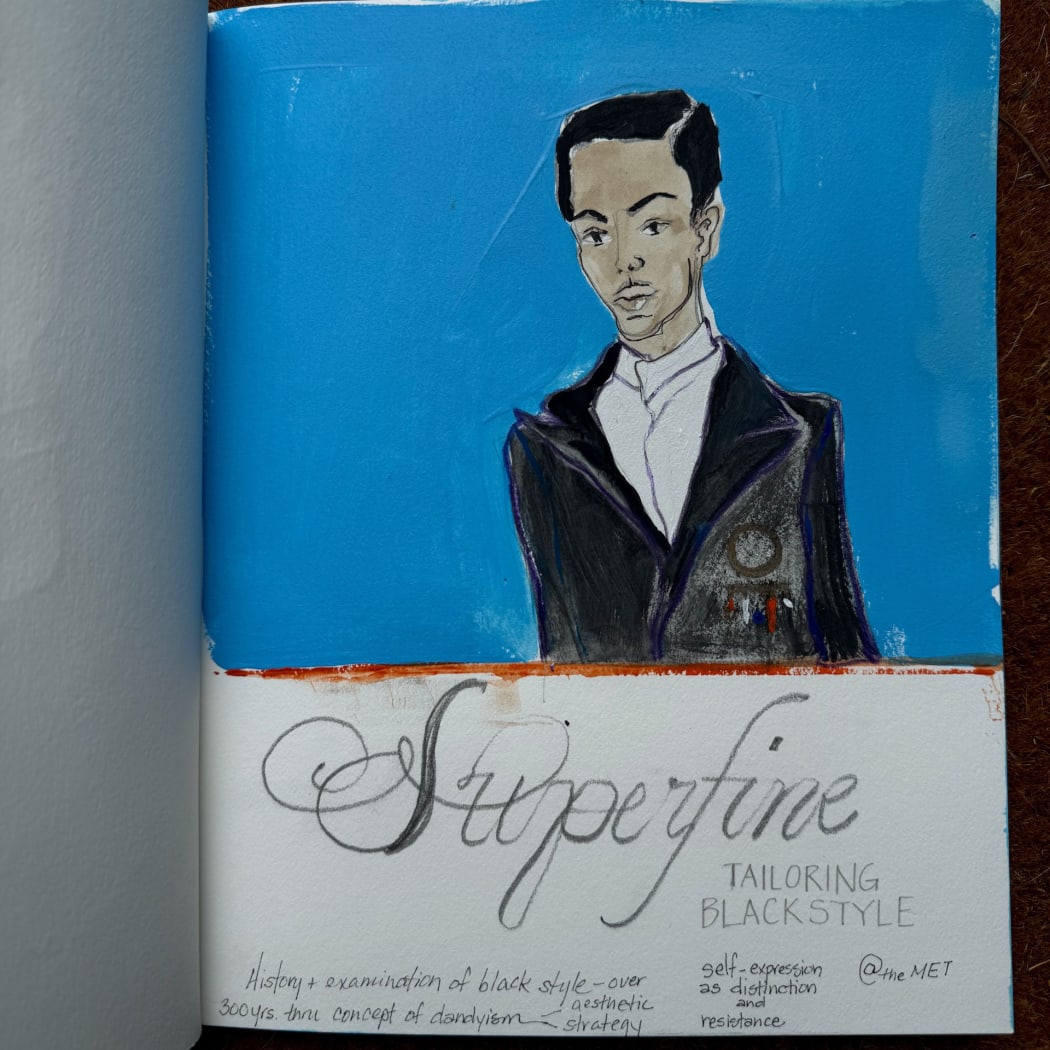 Superfine
TAILORING
BLACK STYLE
History + examination of black style - over
300 yrs. thru concept of dandyism — aesthetic
strategy
self-expression
as distinction
and
resistance
@the MET